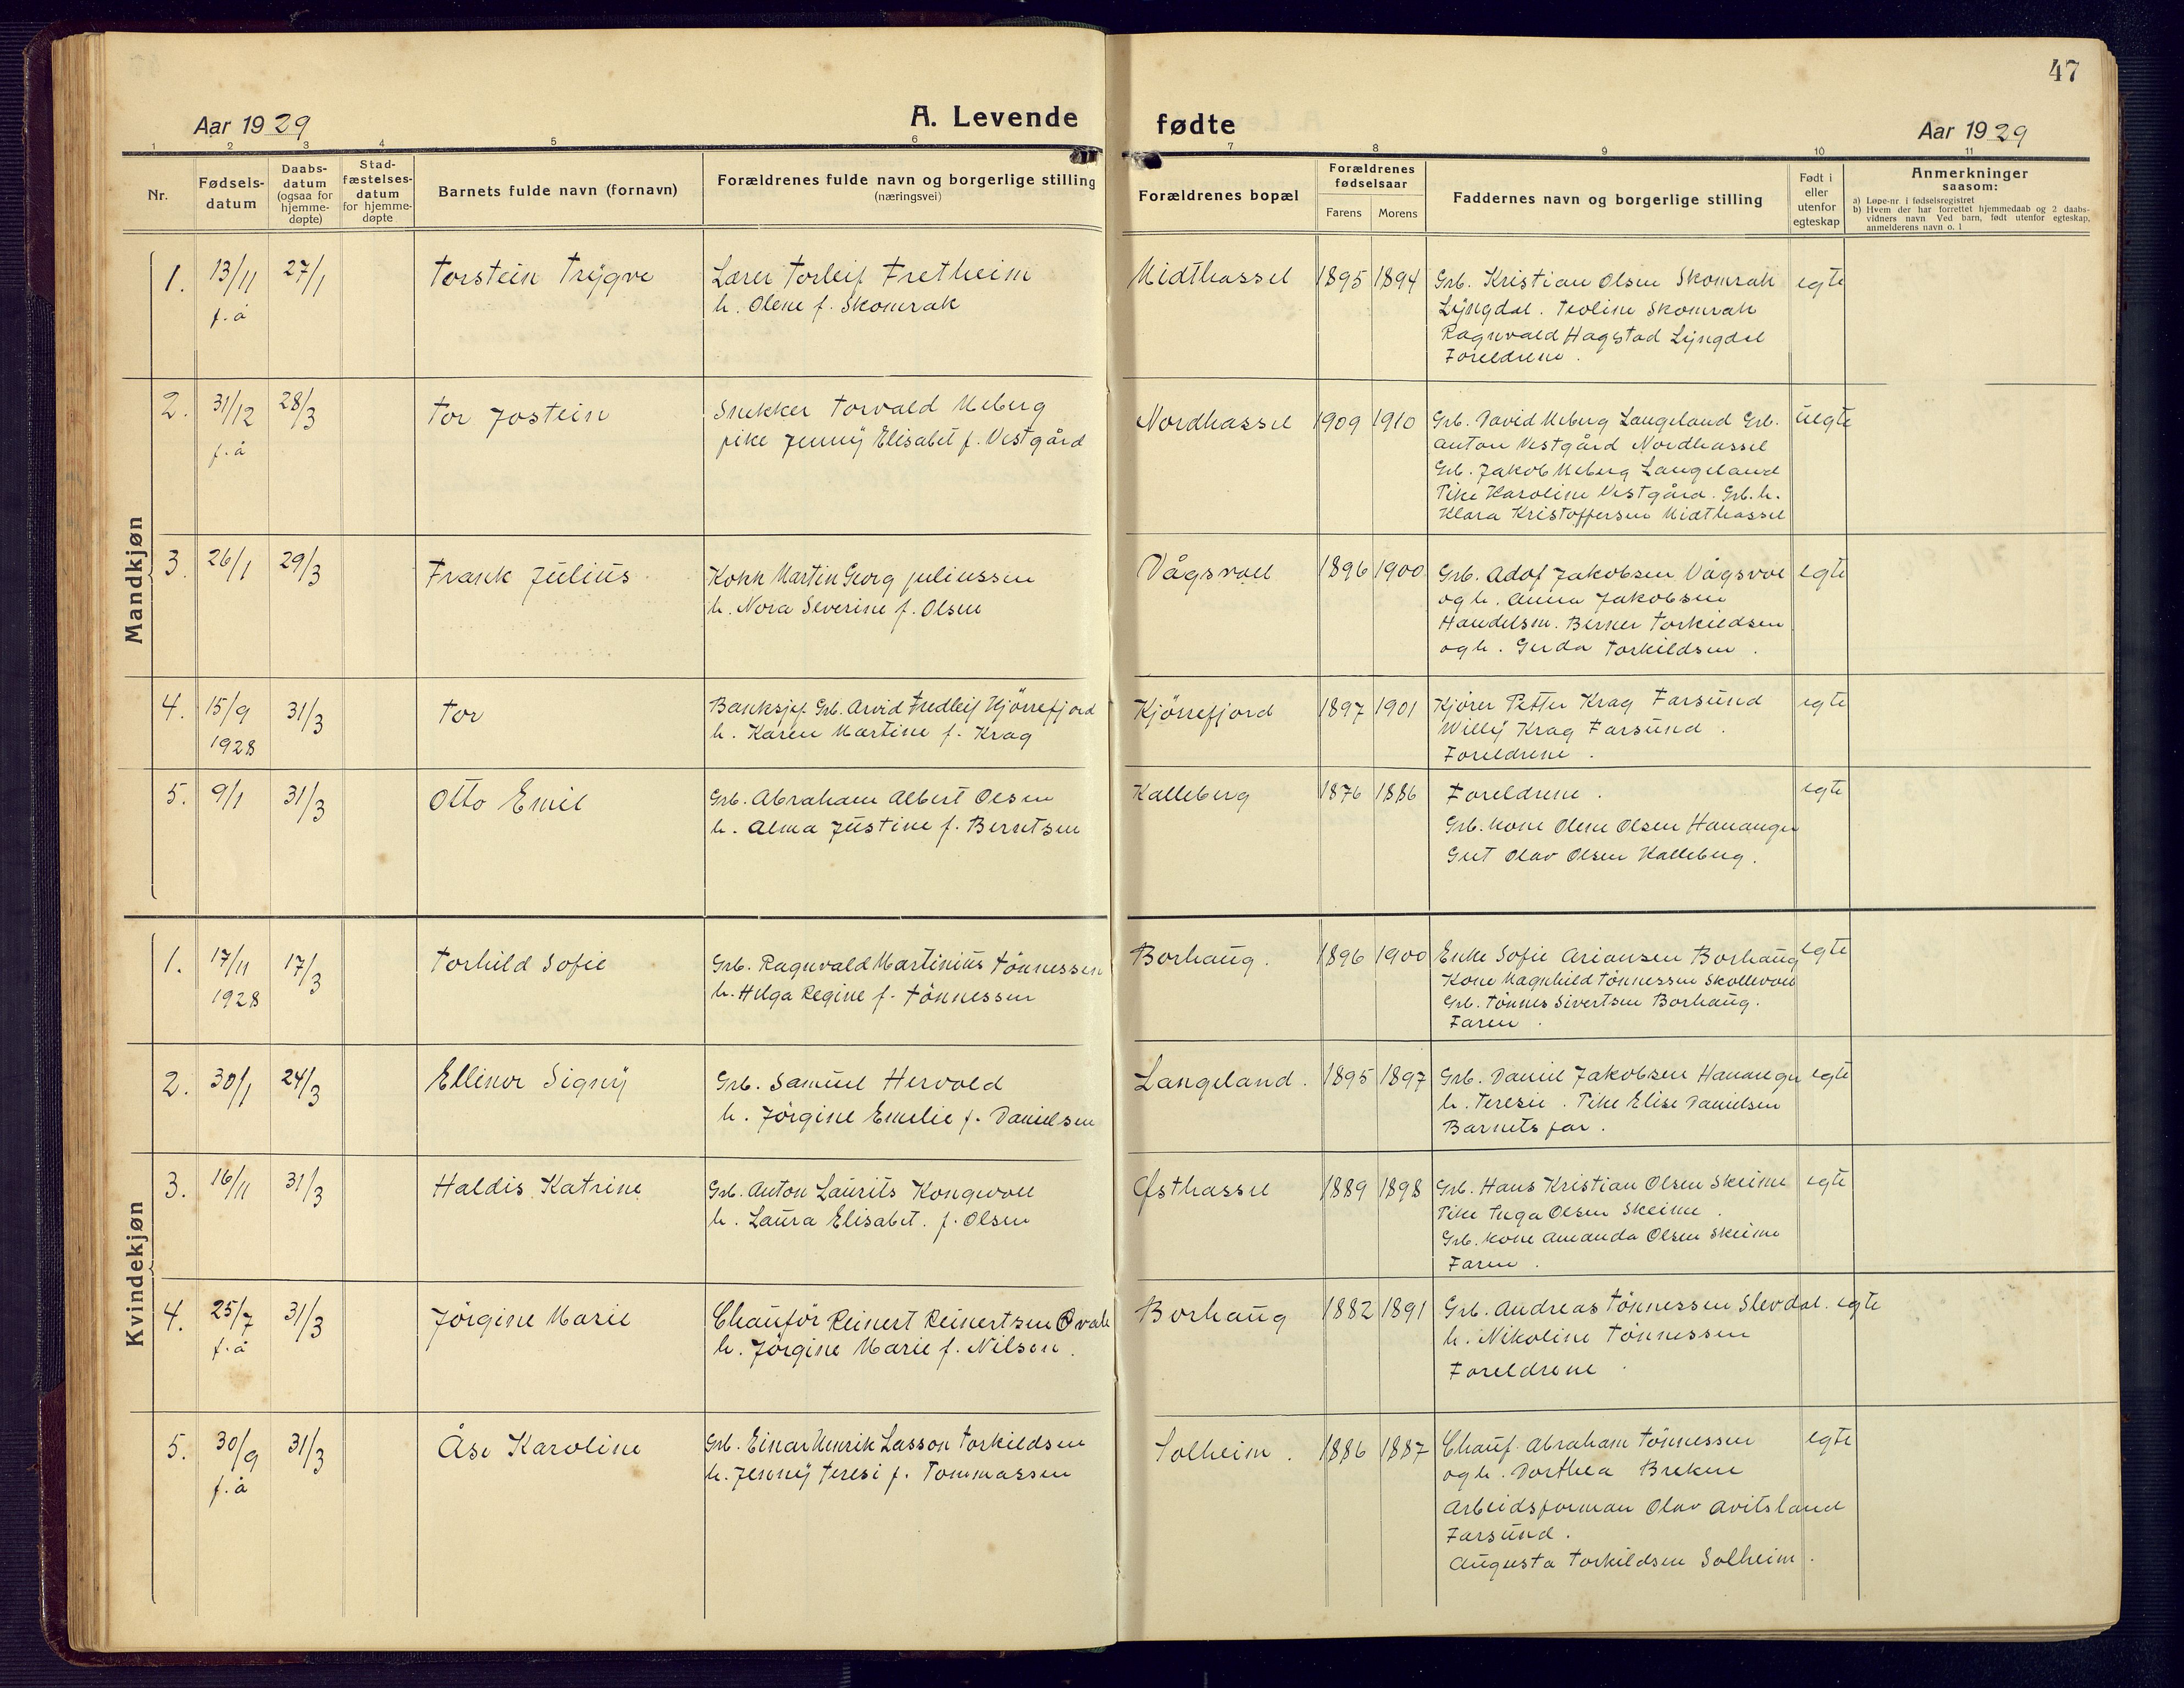 47
Aar 1929
A. Levende
fødte
Aar 1929
1 2 3 4 5 6 7 8 9 10 11
Nr.
Fødsels-
datum
Daabs-
datum
(ogsaa for
hjemme-
døpte)
Stad-
fæstelses-
datum
for hjemme-
døpte
Barnets fulde navn (fornavn)
Forældrenes fulde navn og borgerlige stilling
(næringsvei)
Forældrenes bopæl
Forældrenes
fødselsaar
Farens Morens
Faddernes navn og borgerlige stilling
Født i
eller
utenfor
egteskap
Anmerkninger
saasom:
a) Løpe-nr i fødselsregistret
b) Hvem der har forrettet hjemmedaab og 2 daabs-
vidners navn Ved barn, født utenfor egteskap,
anmelderens navn o. l
Mandkjøn
1. 13/11 27/1 Torstein Trygve Lærer Torleif Fretheim Midthassel 1895 1894 Grb. Kristian Olsen Skomrak egte
f. å h. Olene f. Skomrak Lyngdal. Teoline Skomrak
Ragnvald Hagstad Lyngdal
Foreldrene.
2. 31/12 28/3 Tor Jostein Snekker Torvald Meberg Nordhassel 1909 1910 Grb. David Meberg Langeland Grb. uegte
f. å pike Jenny Elisabet f. Vestgård Anton Vestgård Nordhassel
Grb. Jakob Meberg Langeland
Pike Karoline Vestgård. Grb. h.
Klara Kristoffersen Midthassel
3. 26/1 29/3 Frank Julius Kokk Martin Georg Juliussen Vågsvoll 1896 1900 Grb. Adof Jakobsen Vågsvol egte
h. Nora Severine f. Olsen og h. Anna Jakobsen
Handelsm. Berner Torkildsen
og h. Gerda Torkildsen.
4. 15/9 31/3 Tor Banksjef Grb. Arvid Fredleif Kjørrefjord Kjörrefjord 1897 1901 Kjører Petter Krag Farsund egte
1928 h. Karen Martine f. Krag Willy Krag Farsund.
Foreldrene.
5. 9/1 31/3 Otto Emil Grb. Abraham Albert Olsen Kalleberg 1876 1886 Foreldrene. egte
h. Alma Justine f. Berntsen Grb. kone Olene Olsen Hananger
Gut Olav Olsen Kalleberg.
Kvindekjøn
1. 17/11 17/3 Torhild Sofie Grb. Ragnvald Martinius Tönnessen Borhaug. 1896 1900 Enke Sofie Ariansen Borhaug egte
1928 h. Helga Regine f. Tönnessen Kone Magnhild Tönnessen Skollevoll
Grb. Tönnes Sivertsen Borhaug.
Faren.
2. 30/1 24/3 Ellinor Signy Grb. Samuel Hervold Langeland. 1895 1897 Grb. Daniel Jakobsen egte
h. Jörgine Emelie f. Danielsen h. Teresie. Pike Elise Danielsen
Barnets far.
3. 16/11 31/3 Haldis Katrine Grb. Anton Laurits Kongevoll Østhassel 1889 1898 Grb. Hans Kristian Olsen Skeime egte
h. Laura Elisabet. f. Olsen Pike Inga Olsen Skeime.
Grb. kone Amanda Olsen Skeime
Faren.
4. 25/7 31/3 Jörgine Marie Chauför Reinert Reinertsen Borhaug 1882 1891 Grb. Andreas Tönnessen Slevdal. egte
f. å h. Jörgine Marie f. Nilsen. h. Nikoline Tönnessen
Foreldrene.
5. 30/9 31/3 Åse Karoline Grb. Einar Henrik Lasson Torkildsen Solheim. 1886 1887 Chauf. Abraham Tönnessen egte
f. å h. Jenny Teresi f. Tommassen og h. Dorthea Brekne
Arbeidsforman Olav Avitsland
Farsund.
Augusta Torkildsen Solheim.